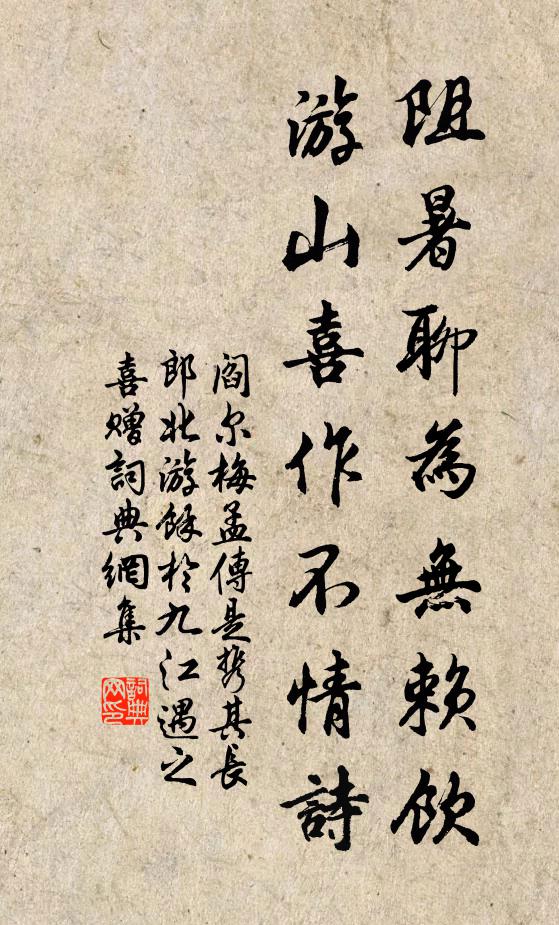 阻暑聊為無賴飲
游山喜作不情詩
阎尔梅孟傳是携其長
郎北游餘於九江遇之
喜贈詞典網集
詞典網印